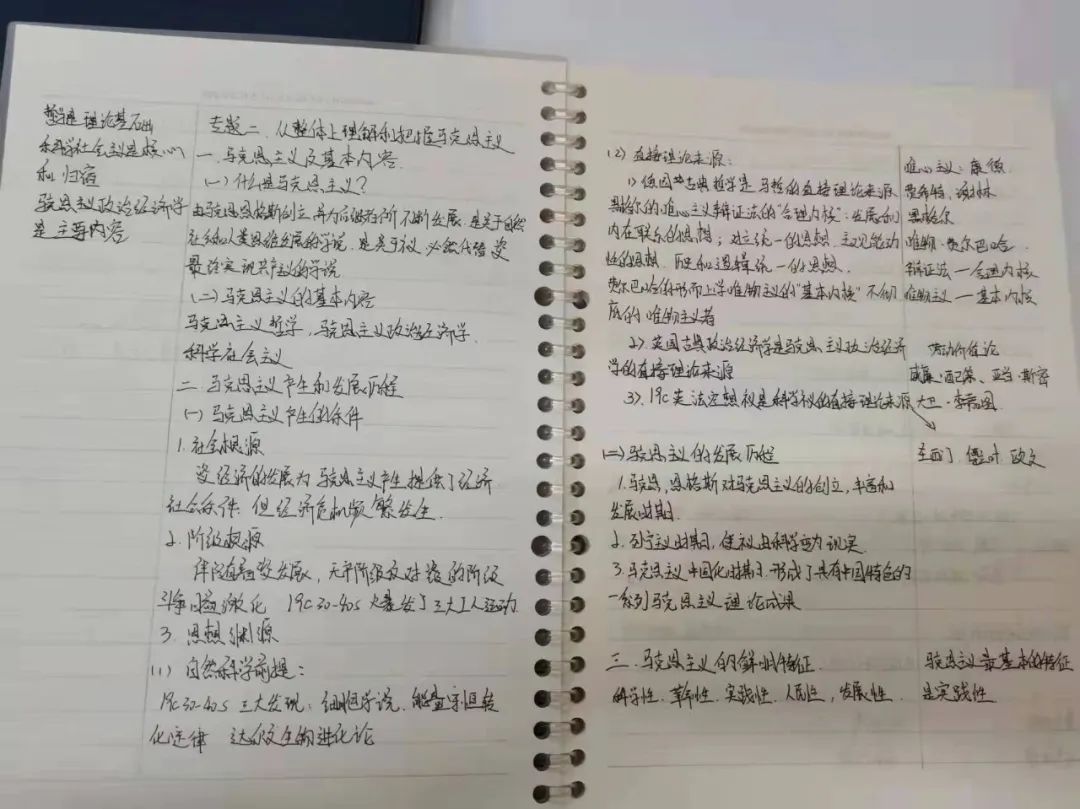 哲学是理论基础
科学社会主义是核心
和归宿
马克思主义政治经济学
是主要内容
专题二、从整体上理解和把握马克思主义
一、马克思主义及基本内容
(一)什么是马克思主义?
由马克思恩格斯创立并为后继者所不断发展,是关于自然
社会和人类思维发展的学说,是关于社义必然代替资
最终实现共产主义的学说
(二)马克思主义的基本内容
马克思主义哲学,马克思主义政治经济学,
科学社会主义
二、马克思主义产生和发展历程
(一)马克思主义产生的条件
1.社会根源
资经济的发展为马克思主义产生提供了经济
社会条件,但经济危机频繁发生.
2.阶级根源
伴随着资发展,无产阶级反对资的阶级
斗争日益激化 19c30-40s 爆发了三大工人运动.
3.思想渊源
(1)自然科学前提:
19c30-40s 三大发现:细胞学说、能量守恒转
化定律 达尔文生物进化论
(2)直接理论来源:
1)德国古典哲学是马哲的直接理论来源
黑格尔的唯心主义辩证法的"合理内核":发展和
内在联系的思想;对立统一的思想、主观能动
性的思想、历史和逻辑统一的思想.
费尔巴哈的形而上学唯物主义的"基本内核" 不彻
底的唯物主义者
2)英国古典政治经济学是马克思主义政治经济
学的直接理论来源
3)19c英法空想社义是科学社义的直接理论来源
(二)马克思主义的发展历程
1.马克思,恩格斯对马克思主义的创立,丰富和
发展时期.
2.列宁主义时期,使社义由科学变为现实.
3.马克思主义中国化时期 形成了具有中国特色的
一系列马克思主义理论成果
三、马克思主义的鲜明特征
科学性、革命性、实践性、人民性,发展性.
唯心主义:康德
费希特、谢林
黑格尔
唯物:费尔巴哈
辩证法—合理内核
唯物主义—基本内核
劳动价值论
威廉·配第、亚当·斯密
大卫·李嘉图
圣西门 傅立叶 欧文
马克思主义最基本的特征
是实践性